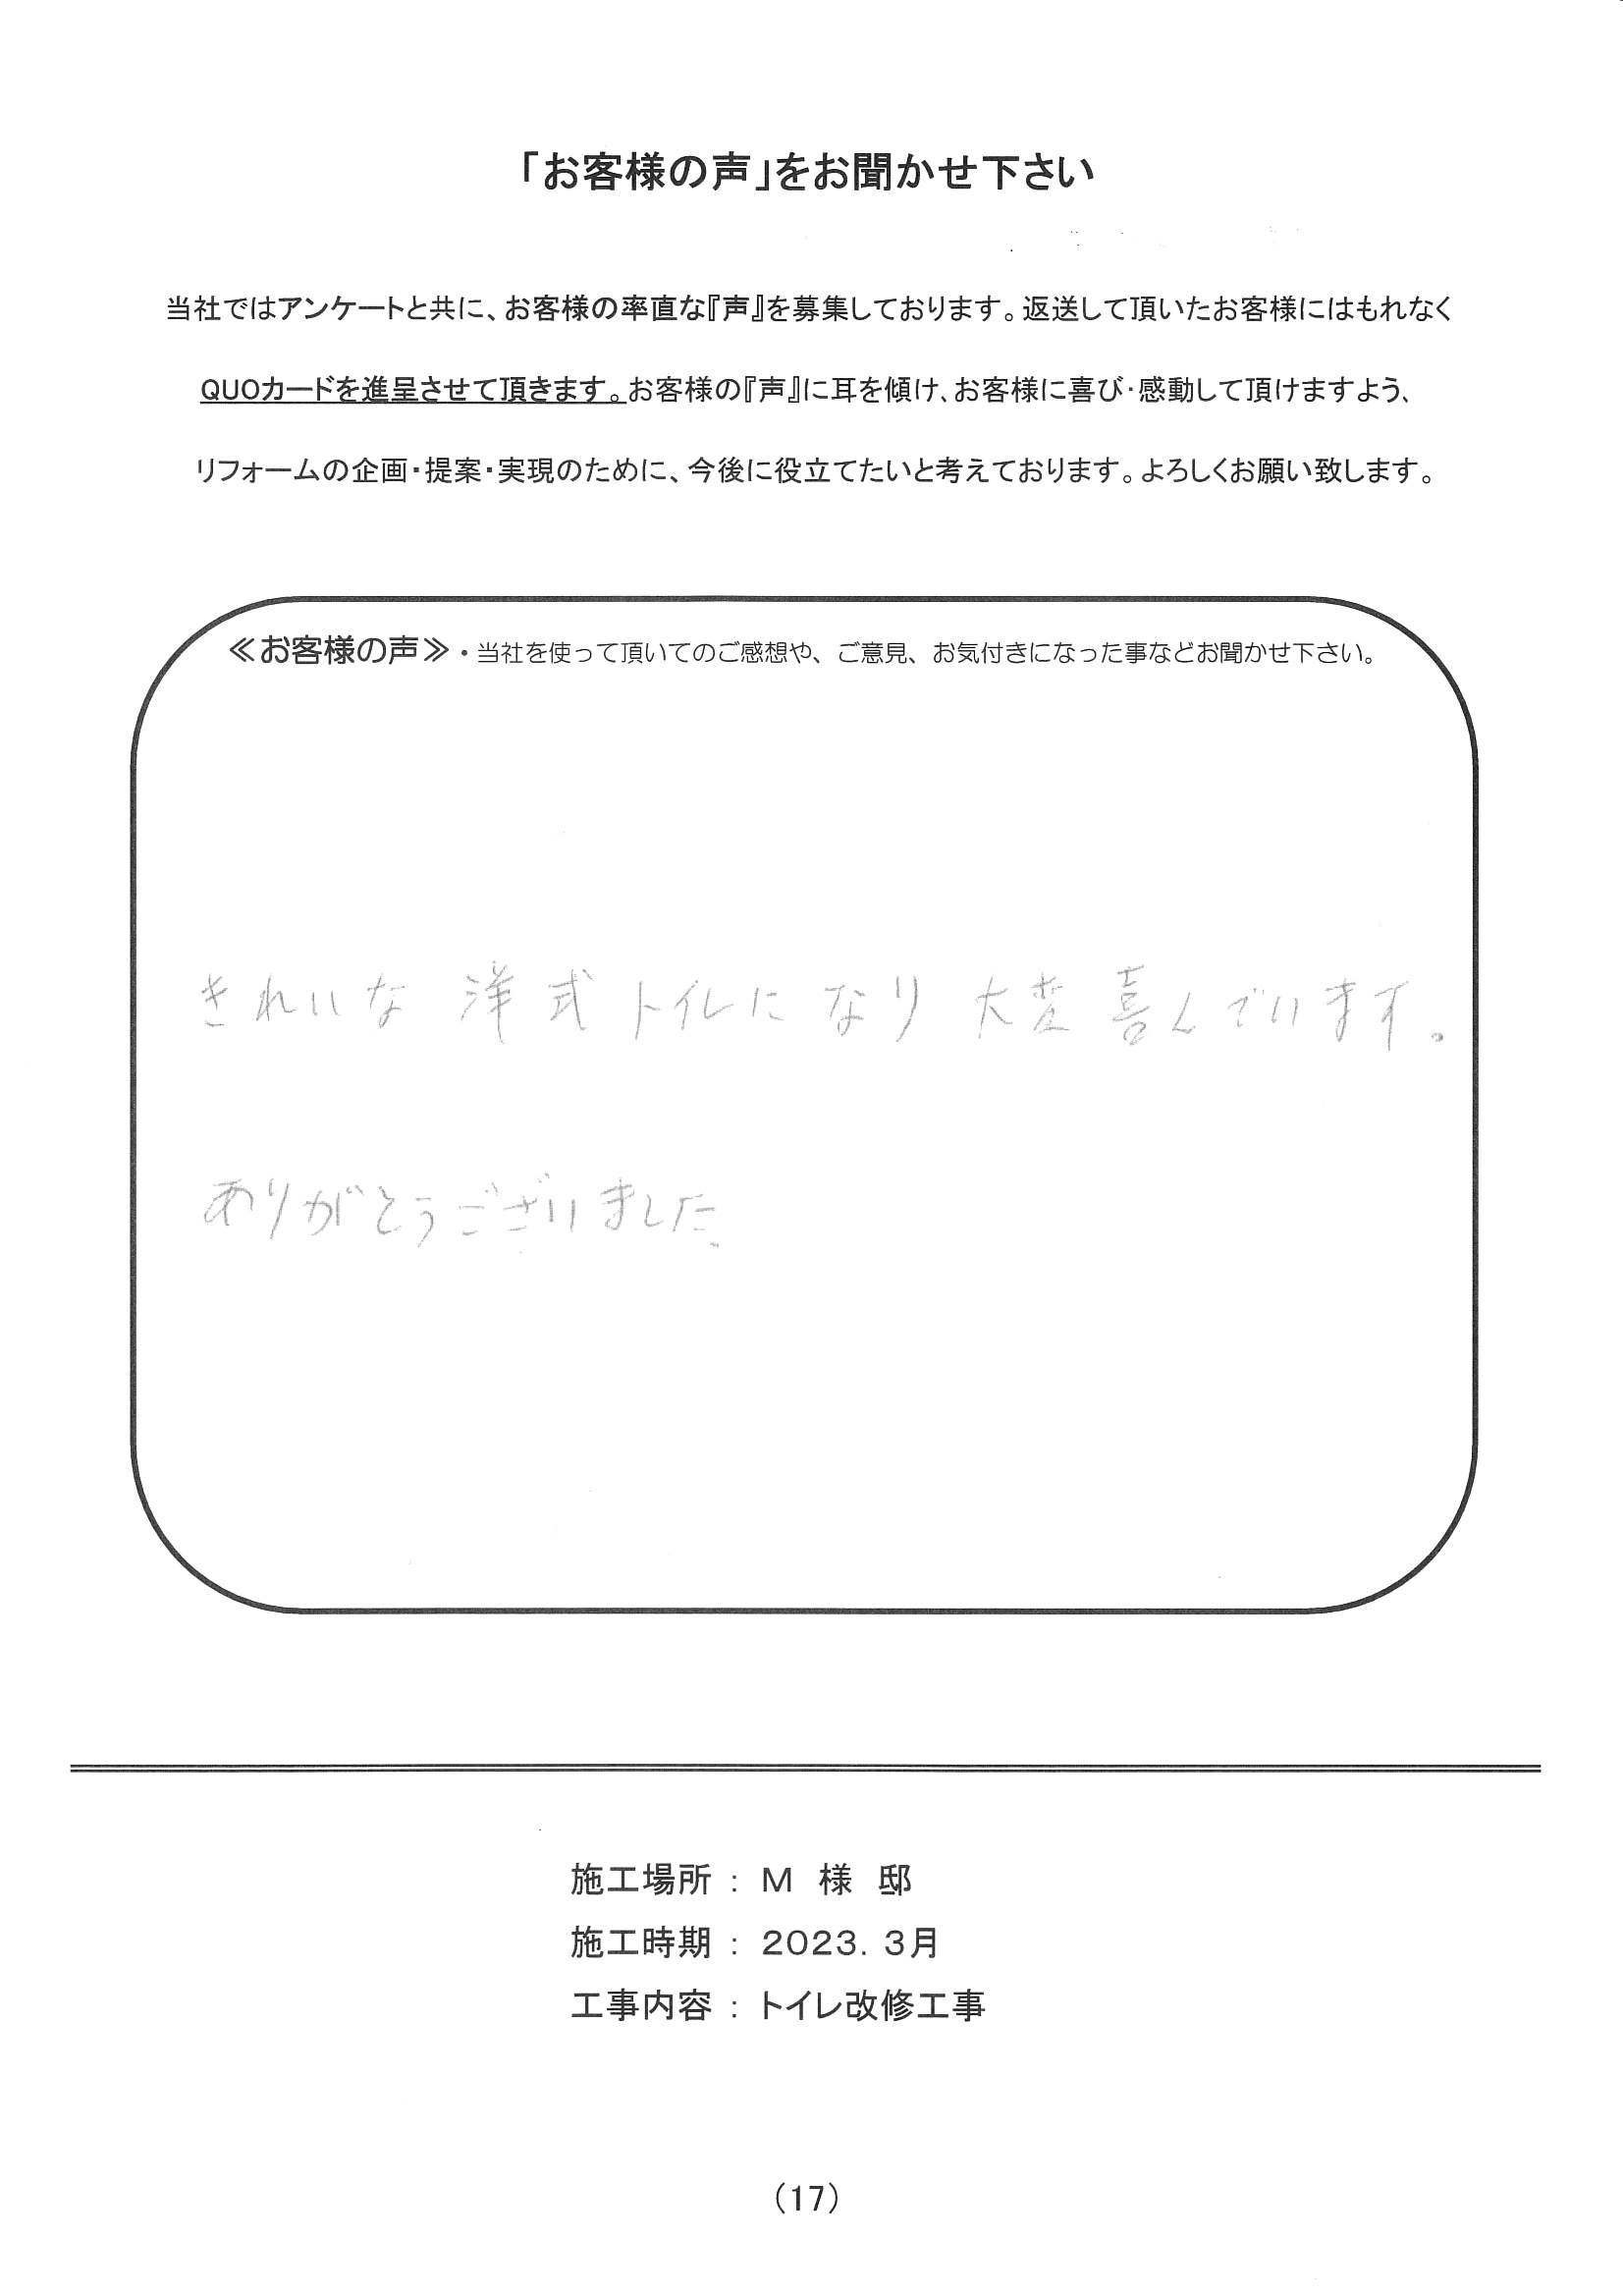 「お客様の声」をお聞かせ下さい
当社ではアンケートと共に、お客様の率直な『声』を募集しております。返送して頂いたお客様にはもれなく
QUOカードを進呈させて頂きます。お客様の『声』に耳を傾け、お客様に喜び・感動して頂けますよう、
リフォームの企画・提案・実現のために、今後に役立てたいと考えております。よろしくお願い致します。
≪お客様の声≫・当社を使って頂いてのご感想や、ご意見、お気付きになった事などお聞かせ下さい。
きれいな 洋式トイレになり 大変喜んでいます。
ありがとうございました。
施工場所 : M 様 邸
施工時期 : 2023.3月
工事内容 : トイレ改修工事
(17)